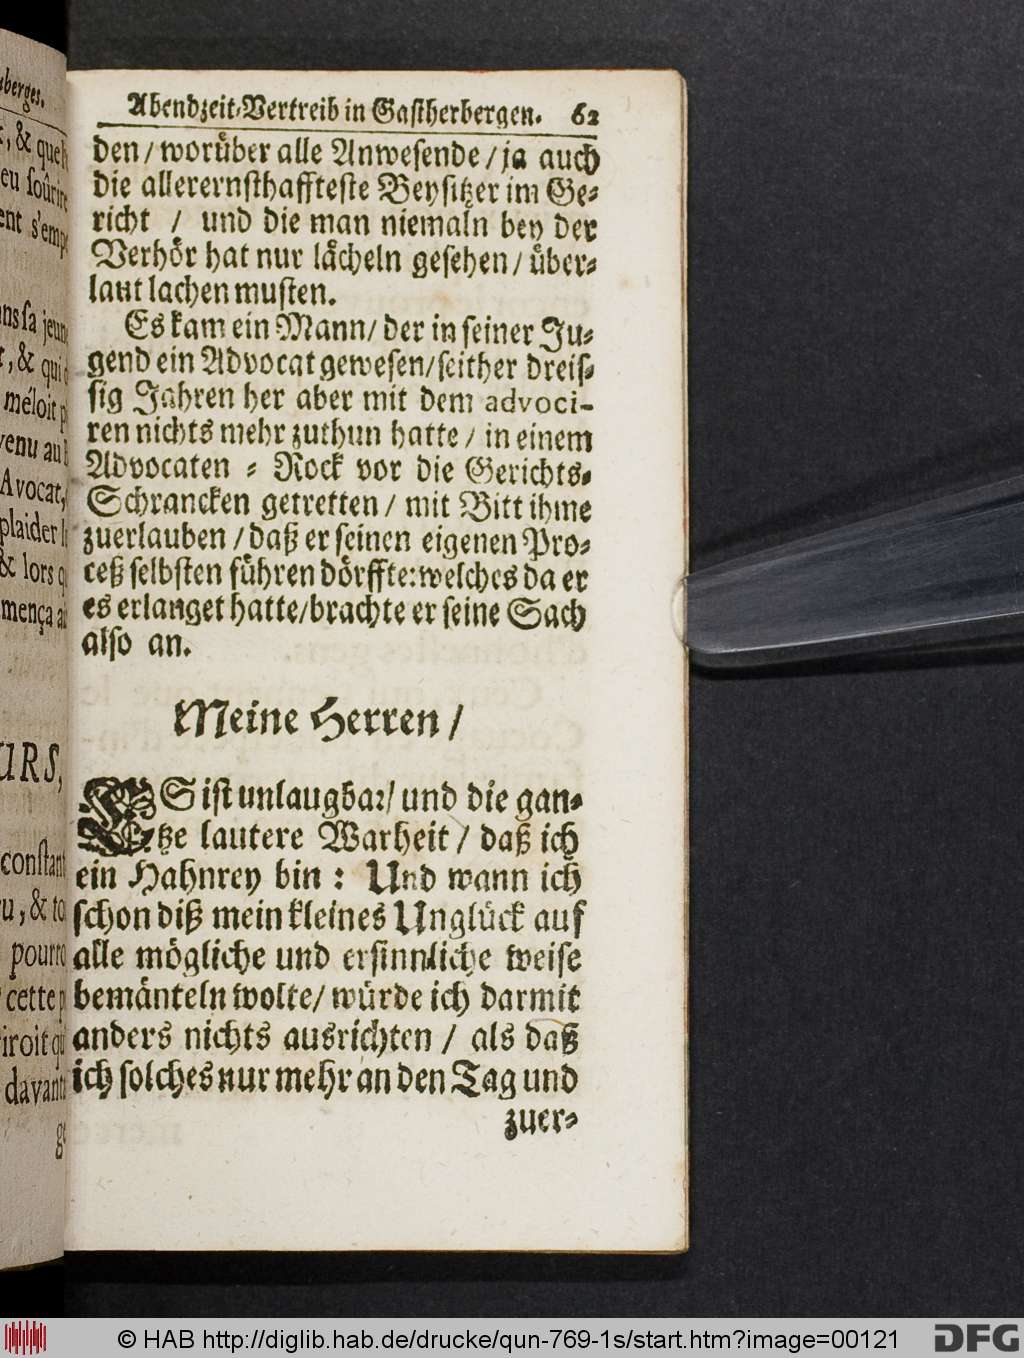 Abendzeit-Vertreib in Gastherbergen. 62
den / worüber alle Anwesende / ja auch
die allerernsthaffteste Beysitzer im Ge-
richt / und die man niemaln bey der
Verhör hat nur lächeln gesehen / über-
laut lachen musten.
Es kam ein Mann / der in seiner Ju-
gend ein Advocat gewesen / seither dreis-
sig Jahren her aber mit dem advoci-
ren nichts mehr zuthun hatte / in einem
Advocaten - Rock vor die Gerichts-
Schrancken getretten / mit Bitt ihme
zuerlauben / daß er seinen eigenen Pro-
ceß selbsten führen dörffte: welches da er
es erlanget hatte / brachte er seine Sach
also an.
Meine Herren /
ES ist unlaugbar / und die gan-
tze lautere Warheit / daß ich
ein Hahnrey bin : Und wann ich
schon diß mein kleines Unglück auf
alle mögliche und ersinnliche weise
bemänteln wolte / würde ich darmit
anders nichts ausrichten / als daß
ich solches nur mehr an den Tag und
zuer-
sberges.
, & que
eu soûrire
ent s'emp
ns sa jeun
, & qui
méloit p
venu au
Avocat,
plaider
& lors q
mença a
URS,
constant
u, & to
pourro
cette p
iroit qu
davant
ge
© HAB http://diglib.hab.de/drucke/qun-769-1s/start.htm?image=00121
DFG